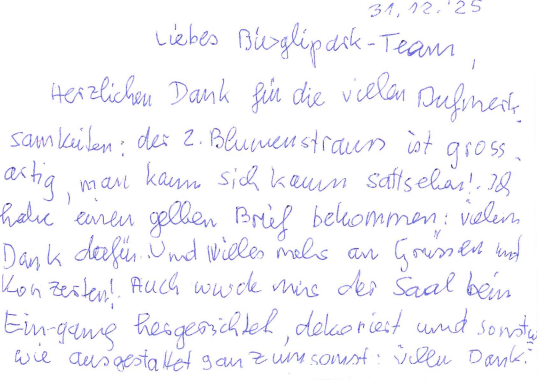 31.12.'25
Liebes Bürglipark-Team,
Herzlichen Dank für die vielen Aufmerk-
samkeiten: der 2. Blumenstrauss ist gross-
artig, man kann sich kaum sattsehen! Ich
habe einen gelben Brief bekommen: vielen
Dank dafür. Und vieles mehr an Grüssen und
Konzerten! Auch wurde uns der Saal beim
Ein-gang hergerichtet, dekoriert und sonst
wie ausgestaltet ganz umsonst: vielen Dank!